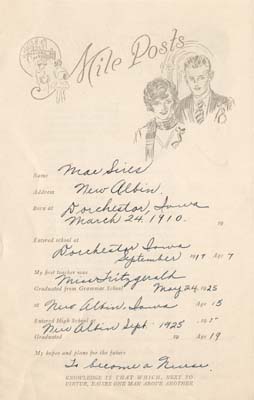 Mile Posts
Name Mae Sires
Address New Albin
Born at Dorchester, Iowa
March 24, 1910. 19
Entered school at
Dorchester Iowa
September 1917 Age 7
My first teacher was Miss Fitzgerald
Graduated from Grammar School May 24, 1925
at New Albin, Iowa Age 15
Entered High School at
New Albin Sept 1925
Graduated 19 Age 19
My hopes and plans for the future
To become a Nurse.
KNOWLEDGE IS THAT WHICH, NEXT TO
VIRTUE, RAISES ONE MAN ABOVE ANOTHER